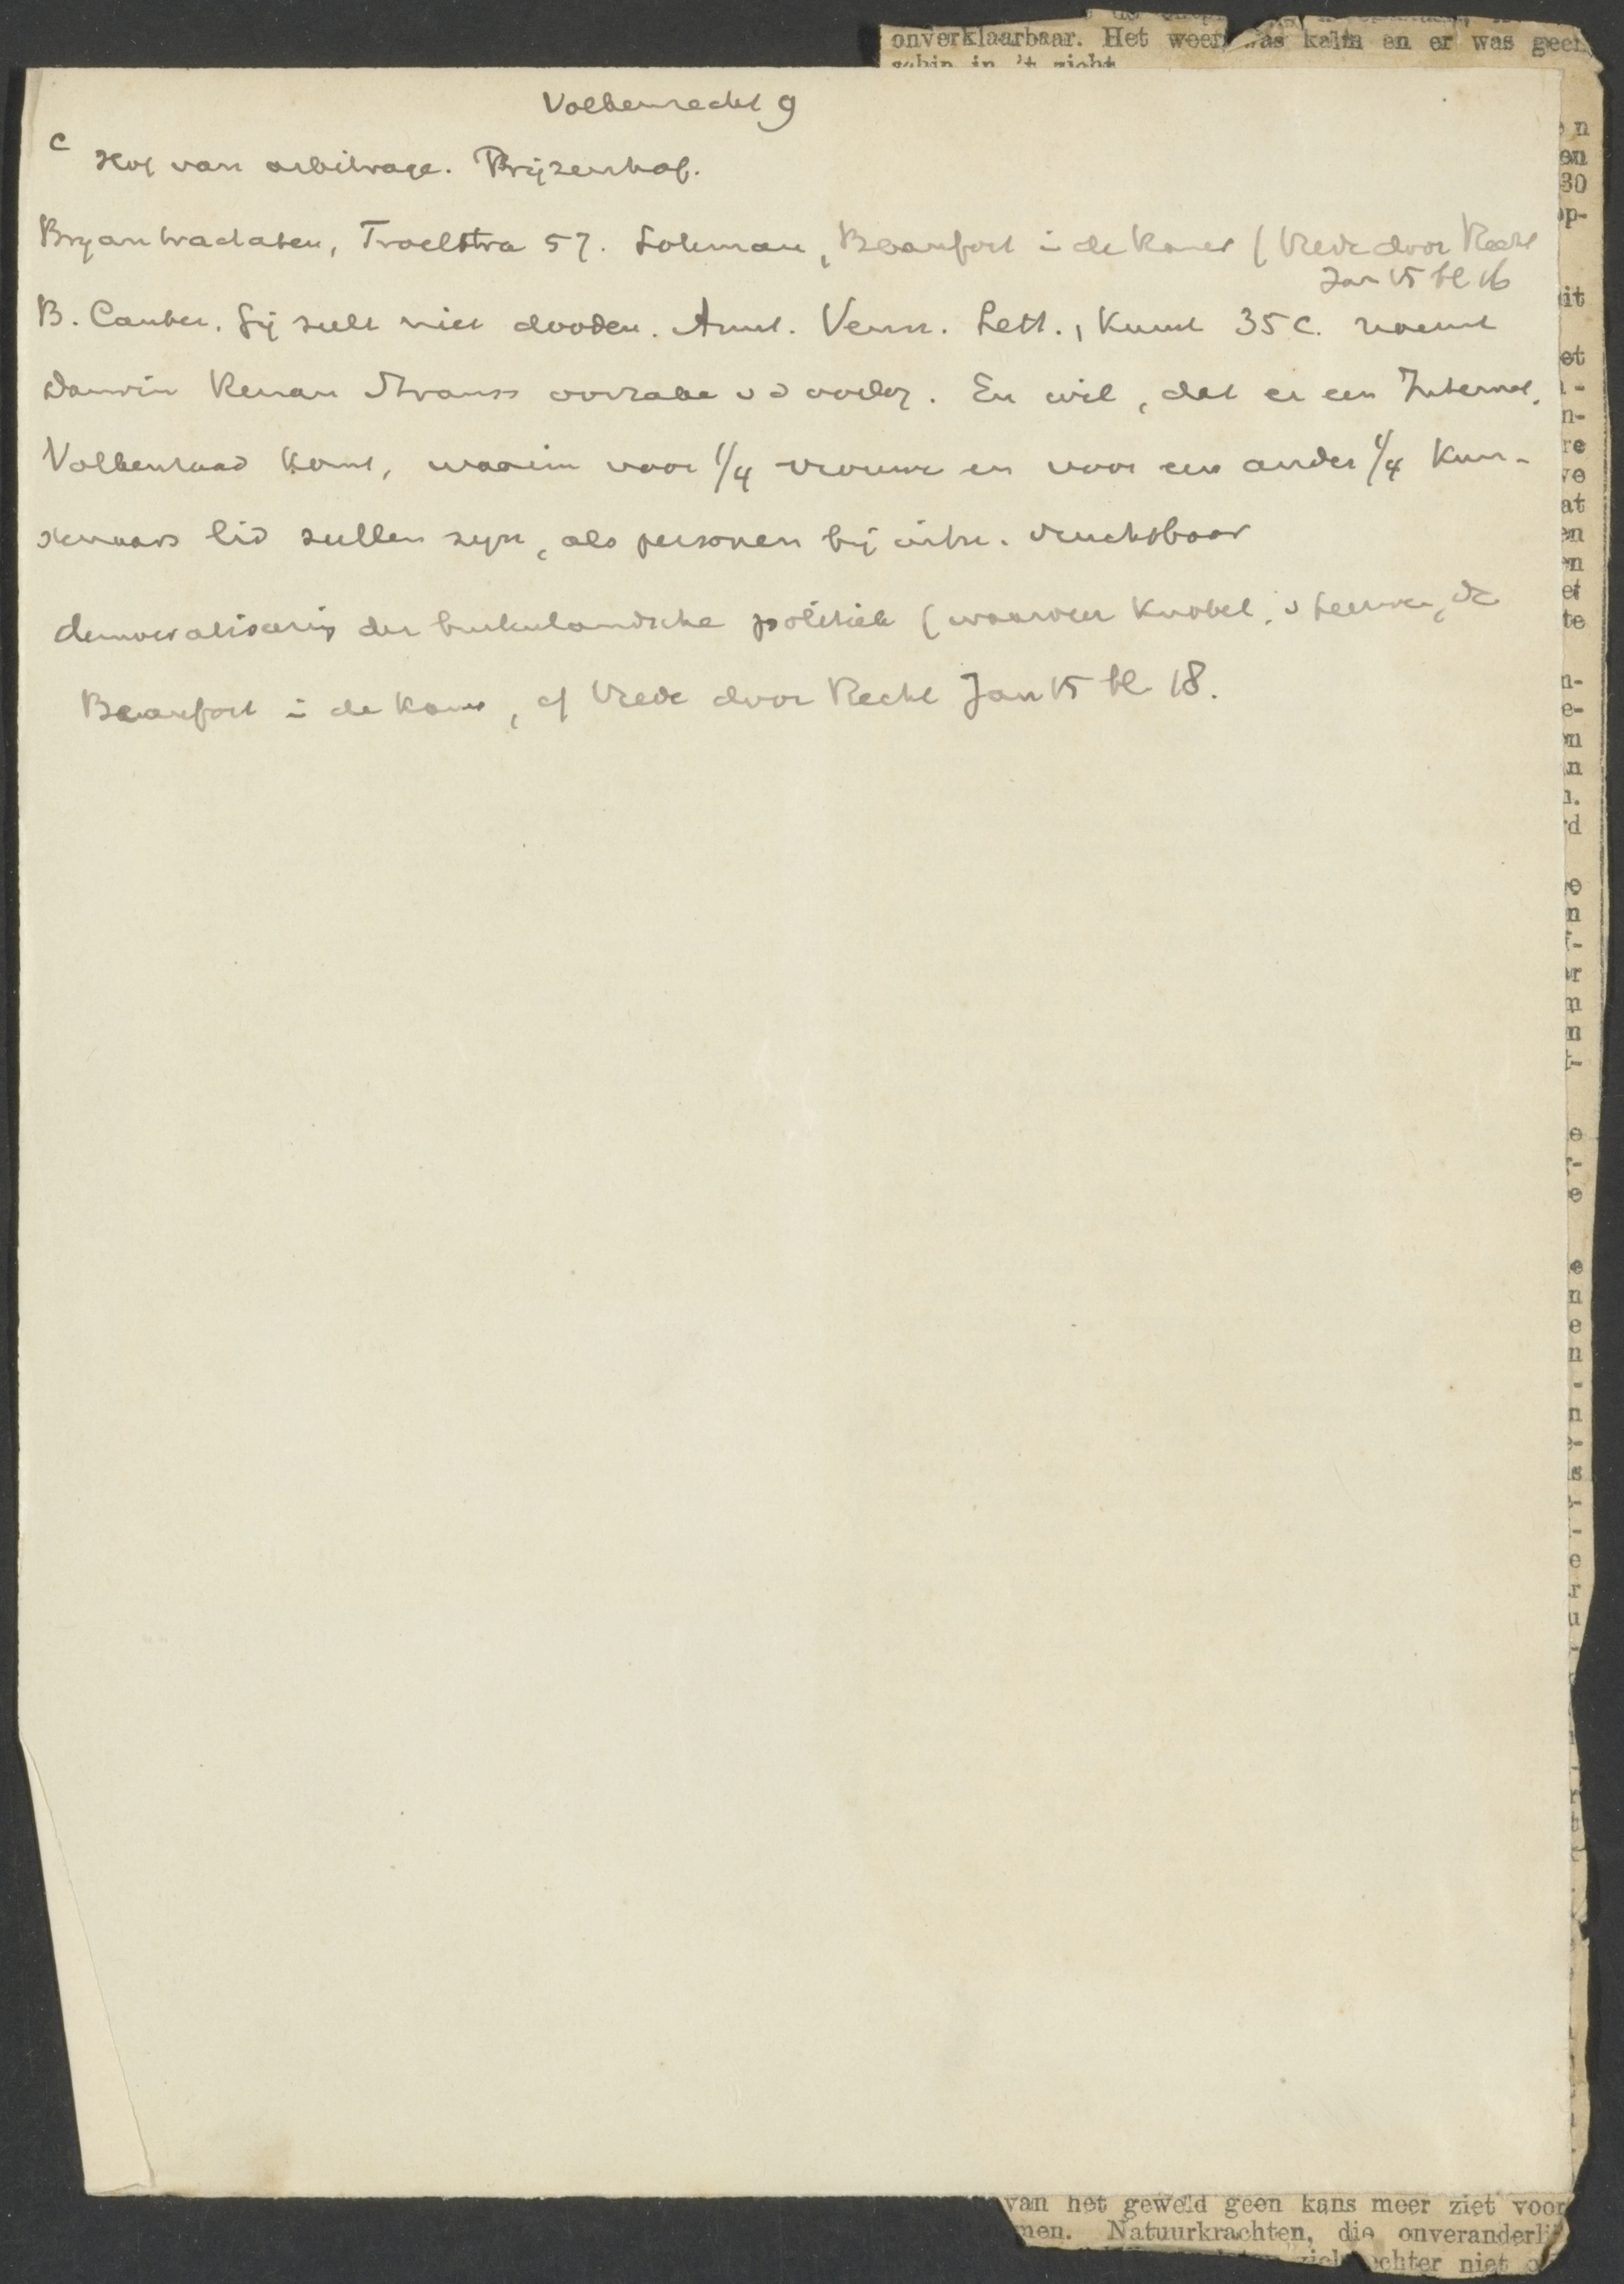 onverklaarbaar. Het weer was kalm en er was geen
schip in 't zicht
Volkenrecht 9
c Hof van arbitrage. Prijzenhof.
Bryantractaten, Troelstra 57. Lohman, Beaufort in de Kamer (Vrede door Recht
Jan 15 bl 16
B. Canter. Gij zult niet dooden. Amst. Venn. Lett., Kunst 35 c. noemt
Darwin Renan Strauss oorzake v d oorlog. En wil, dat er een Internat.
Volkenraad komt, waarin voor 1/4 vrouwen en voor een ander 1/4 kun-
stenaars lid zullen zijn, als personen bij uitn. vruchtbaar
democratiseering der buitenlandsche politiek (waarover Knobel, v Leeuwen, de
Beaufort in de Kamer, cf Vrede door Recht Jan 15 bl 18.
van het geweld geen kans meer ziet voor
men. Natuurkrachten, die onveranderli
echter niet